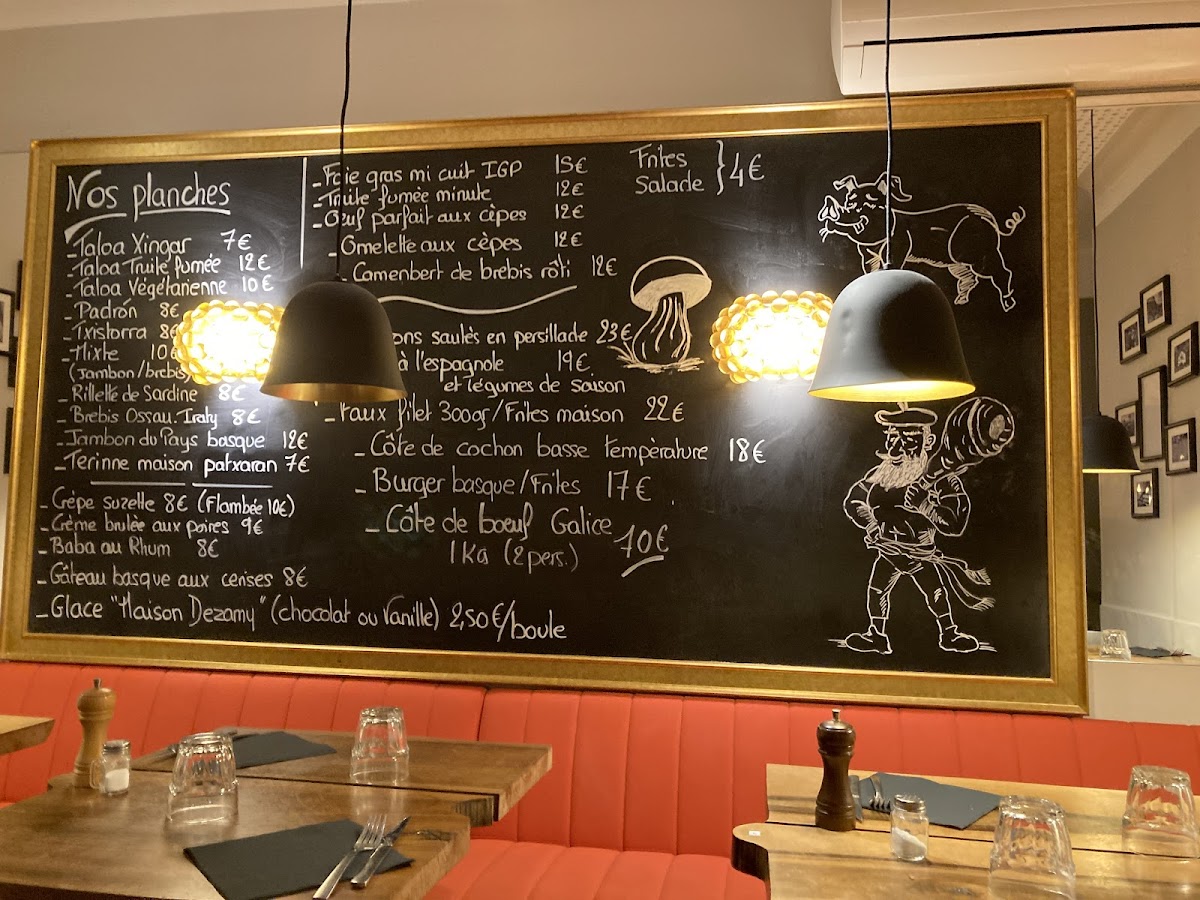 Nos planches
- Taloa Xingar 7€
- Taloa Truite fumée 12€
- Taloa Végétarienne 10€
- Padrón 8€
- Txistorra 8€
- Mixte 10€
(Jambon/brebis)
- Rillette de Sardine 8€
- Brebis Ossau.Iraty 8€
- Jambon du Pays basque 12€
- Terinne maison patxaran 7€
- Crêpe suzette 8€ (Flambée 10€)
- Crème brulée aux poires 9€
- Baba au Rhum 8€
- Gâteau basque aux cerises 8€
- Glace "Maison Dezamy" (chocolat ou Vanille) 2,50€/boule
- Foie gras mi cuit IGP 15€
- Truite fumée minute 12€
- Œuf parfait aux cèpes 12€
- Omelette aux cèpes 12€
Camembert de brebis rôti 12€
sautés en persillade 23€
à l'espagnole 19€
et légumes de saison
- Faux filet 300gr/Frites maison 22€
- Côte de cochon basse température 18€
- Burger basque/Frites 17€
- Côte de boeuf Galice
1Kg (2pers.) 70€
Frites
Salade } 4€